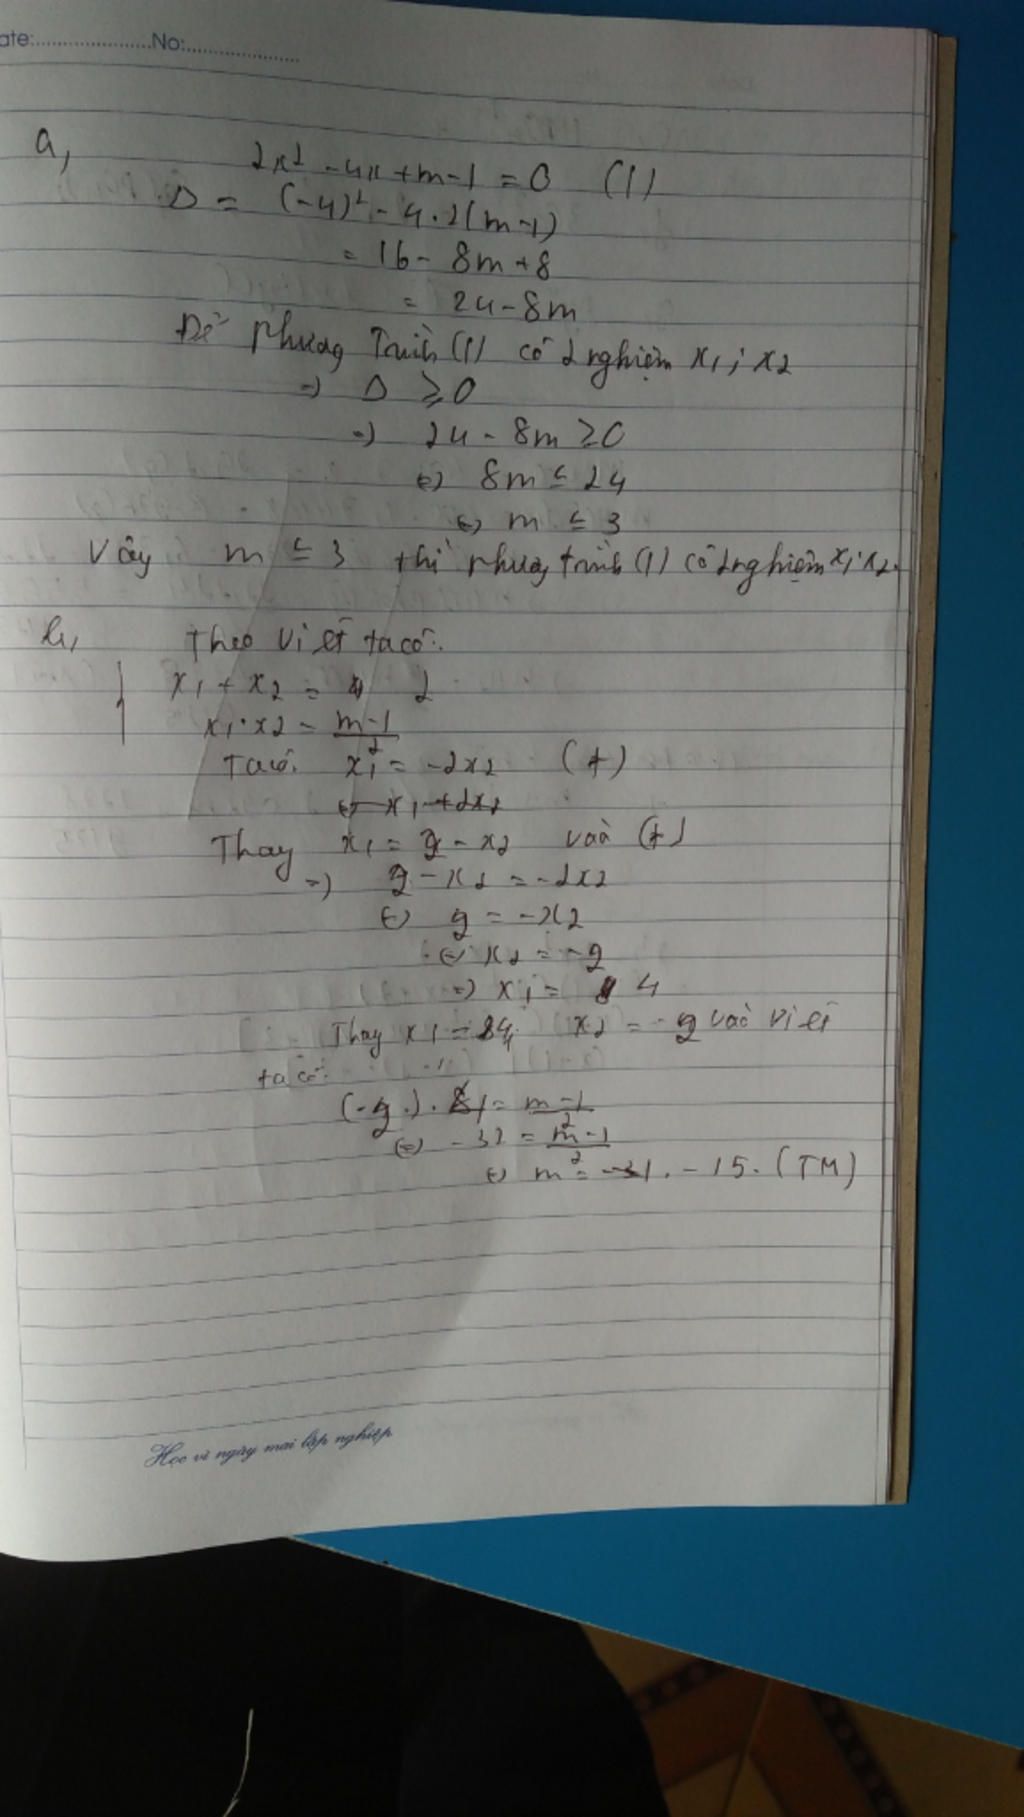 ate:....................No:....................
a,
2x² - 4x + m - 1 = 0 (1)
Δ = (-4)² - 4.2(m-1)
= 16 - 8m + 8
= 24 - 8m
Để phương trình (1) có 2 nghiệm x₁; x₂
=> Δ ≥ 0
=> 24 - 8m ≥ 0
<=> 8m ≤ 24
<=> m ≤ 3
Vậy m ≤ 3 thì phương trình (1) có 2 nghiệm x₁; x₂.
b, Theo Vi ét ta có:
{ x₁ + x₂ = 2
x₁.x₂ = (m-1)/2
Ta có: x₁ = -2x₂ (*)
<=> x₁ + 2x₂
Thay x₁ = 2 - x₂ vào (*)
=> 2 - x₂ = -2x₂
<=> 2 = -x₂
<=> x₂ = -2
=> x₁ = 4
Thay x₁ = 4, x₂ = -2 vào Vi ét
ta có:
(-2). 4 = (m-1)/2
<=> = (m-1)/2
<=> m = -15. (TM)
Học vì ngày mai lập nghiệp